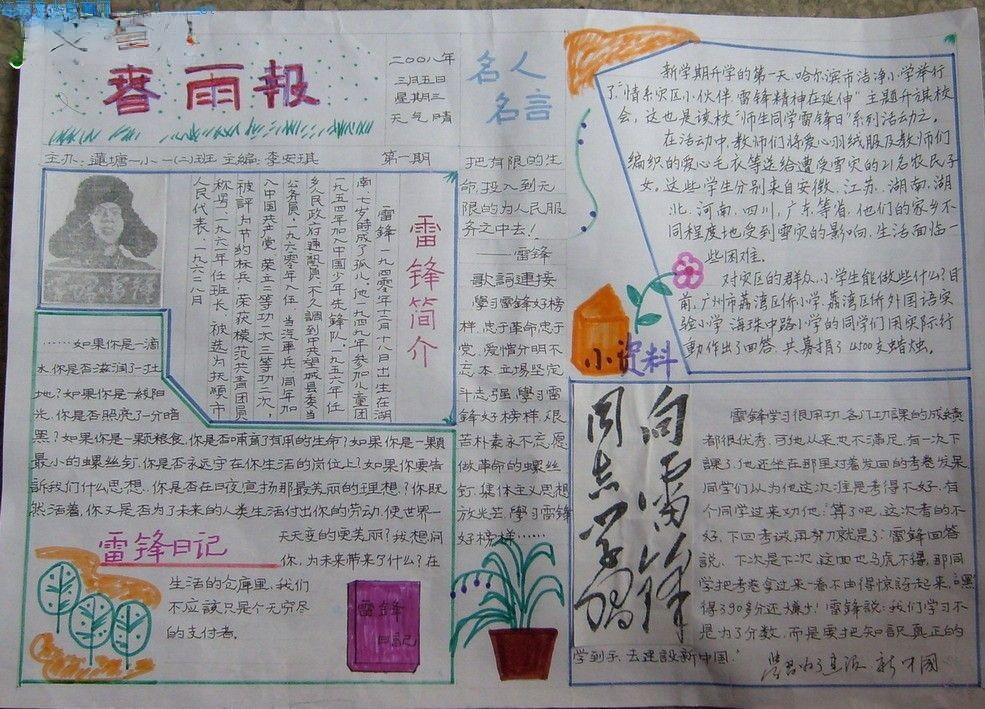 春雨報
二〇〇八年
三月五日
星期三
天气 晴
主办：蓮塘一小一(二)班 主編：李安琪
第一期
名人
名言
把有限的生
命，投入到无
限的为人民服
务之中去！
——雷锋
歌詞連接
學习雷锋好榜
样，忠于革命忠于
党，爱憎分明不
忘本，立場坚定
斗志强，學习雷
锋好榜样，艰
苦朴素永不忘，愿
做革命的螺丝
钉，集体主义思想
放光芒，學习雷锋
好榜样……
雷锋简介
雷锋，一九四〇年十二月十八日出生在湖
南，七岁時成了孤儿。他一九四九年参加儿童团
一九五四年加入中国少年先锋队，一九五六年任
乡人民政府通訊員，不久調到中共望城县委当
公务員，一九六〇年入伍，当汽車兵，同年加
入中国共产党，荣立二等功一次，三等功二次，
被評为节约标兵，荣获模范共青团員
称号，一九六一年任班长，被选为抚順市
人民代表，一九六二年八月
……如果你是一滴
水，你是否滋润了一寸土
地？如果你是一綫阳
光，你是否照亮了一分暗
黑？如果你是一颗粮食，你是否哺育了有用的生命？如果你是一顆
最小的螺丝钉，你是否永远守在你生活的岗位上？如果你要告
訴我们什么思想，你是否在日夜宣扬那最美丽的理想？你既
然活着，你又是否为了未来的人类生活付出你的劳动，使世界一
天天变的更美丽？我想问
你，为未来带来了什么？在
生活的仓库里，我们
不应該只是个无穷尽
的支付者。
雷锋日记
雷锋
日記
新学期开学的第一天，哈尔滨市洁净小学举行
了“情系灾区小伙伴，雷锋精神在延伸”主題升旗校
会，这也是该校“师生同学雷锋日”系列活动之一。
在活动中，教师们将爱心羽绒服及教师们
编织的爱心毛衣等送给遭受雪灾的21名农民子
女，这些学生分别来自安徽、江苏、湖南、湖
北、河南、四川、广东等省，他们的家乡不
同程度地受到雪灾的影响，生活面临一
些困难。
对灾区的群众，小学生能做些什么？目
前，广州市荔湾区侨小学、荔湾区侨外国语实
验小学、海珠中路小学的同学们用实际行
動作出了回答，共募捐了4500支蜡烛。
小资料
向雷锋
同志学习
雷锋学习很用功，各门功課的成績
都很优秀，可他从来也不满足，有一次下
課了，他还坐在那里对着发回的考卷发呆
同学们以为他这次准是考得不好，有
个同学过来劝他：“算了吧，这次考的不
好，下回考試再努力就是了”雷锋回答
說，下次是下次，这回也马虎不得，那同
学把考卷拿过来一看不由得惊訝起来，“嘿
得了90多分还嫌少！雷锋說：我们学习不
是为了分数，而是要把知识真正的
学到手，去建設新中国。”